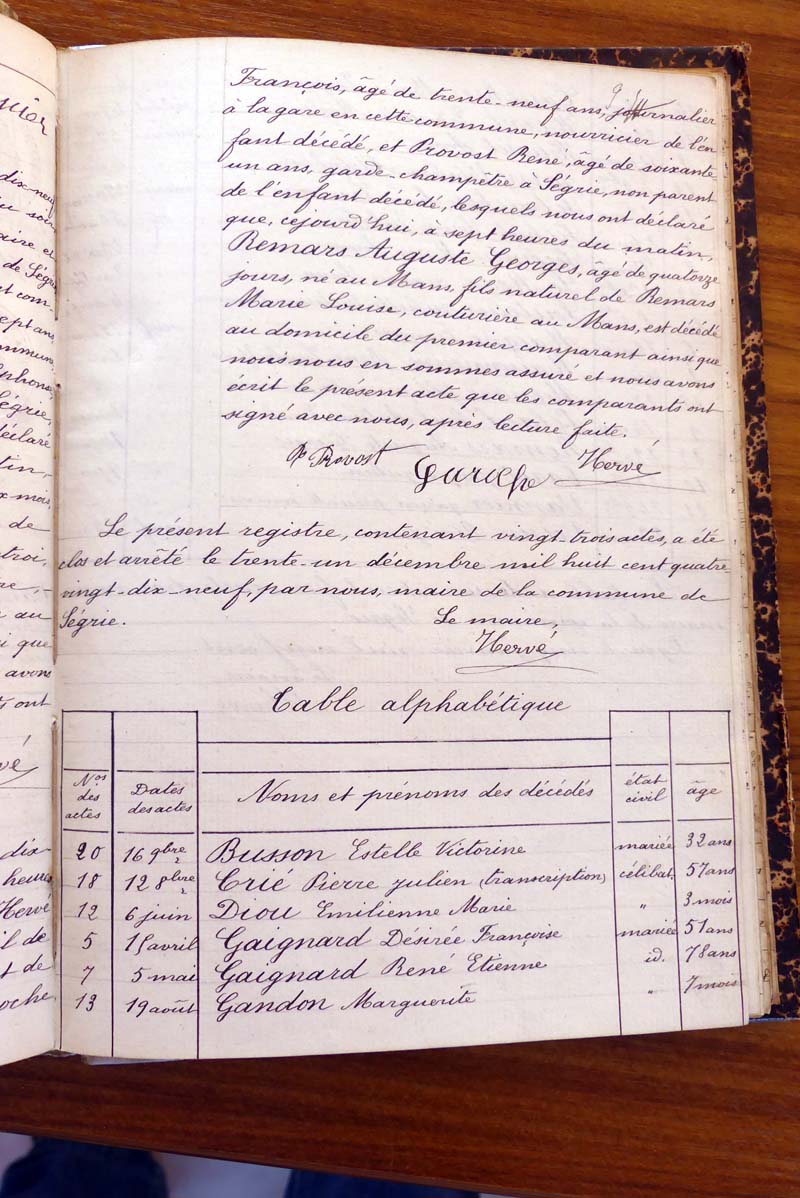 uier
dix-neuf
du soir
aire et
de Ségrie
nt com-
sept ans,
ommune
lphonse,
Ségrie,
déclaré
tin,
x mois,
de
troi,
re,
au
i que
avons
ts ont
vé
dix
heures
Hervé
il de
t de
oche
François, âgé de trente-neuf ans, journalier
à la gare en cette commune, nourricier de l'en
fant décédé, et Provost René, âgé de soixante-
un ans, garde-champêtre à Ségrie, non parent
de l'enfant décédé, lesquels nous ont déclaré
que, cejourd'hui, à sept heures du matin,
Remars Auguste Georges, âgé de quatorze
jours, né au Mans, fils naturel de Remars
Marie Louise, couturière au Mans, est décédé
au domicile du premier comparant ainsi que
nous nous en sommes assuré et nous avons
écrit le présent acte que les comparants ont
signé avec nous, après lecture faite.
R Provost Guroche Hervé
Le présent registre, contenant vingt-trois actes, a été
clos et arrêté le trente-un décembre mil huit cent quatre-
vingt-dix-neuf, par nous, maire de la commune de
Ségrie. Le maire,
Hervé
Table alphabétique
Nos des actes Dates des actes Noms et prénoms des décédés état civil âge
20 16 9bre Busson Estelle Victorine mariée 32 ans
18 12 8bre Crié Pierre Julien (transcription) célibat. 57 ans
12 6 juin Diou Emilienne Marie " 3 mois
5 15 avril Gaignard Désirée Françoise mariée 51 ans
7 5 mai Gaignard René Etienne id. 78 ans
13 19 août Gandon Marguerite " 7 mois